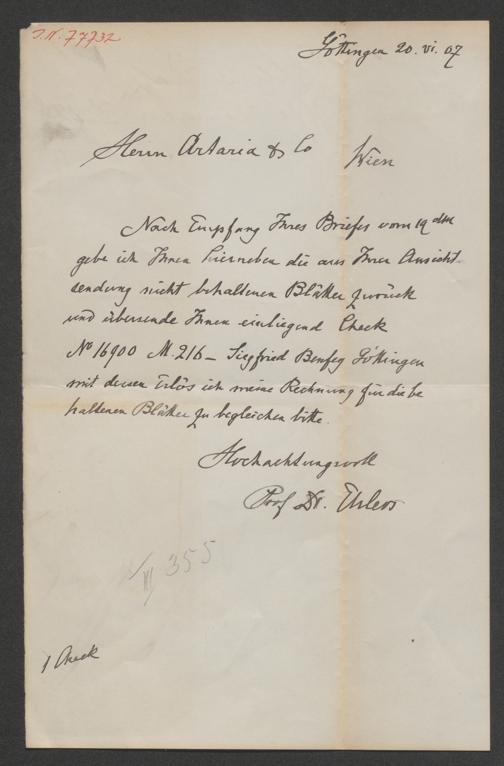 I.N. 77732
Göttingen 20. VI. 07
Herrn Artaria & Co Wien
Nach Empfang Ihres Briefes vom 19 dss
gebe ich Ihnen hierneben die aus Ihrer Ansicht
sendung nicht behaltenen Blätter zurück
und übersende Ihnen einliegend Check
No 16900 M. 216 – Siegfried Benfey Göttingen
mit dessen Erlös ich meine Rechnung für die be
haltenen Blätter zu begleichen bitte.
Hochachtungsvoll
Prof Dr. Ehlers
VII 355
1 Check